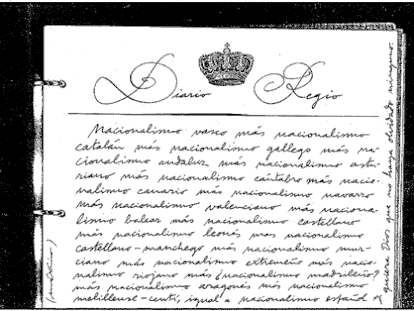 Diario Regio
Nacionalismo vasco más nacionalismo
catalán más nacionalismo gallego más na-
cionalismo andaluz más nacionalismo astu-
riano más nacionalismo cántabro más nacio-
nalismo canario más nacionalismo navarro
más nacionalismo valenciano más naciona-
lismo balear más nacionalismo castellano
más nacionalismo leonés mas nacionalismo
castellano-manchego más nacionalismo mur-
ciano más nacionalismo extremeño más nacio-
nalismo riojano más ¿nacionalismo madrileño?
más nacionalismo aragonés más nacionalismo
melillense-ceutí, igual a nacionalismo español
quiera Dios que no haya olvidado ninguno.